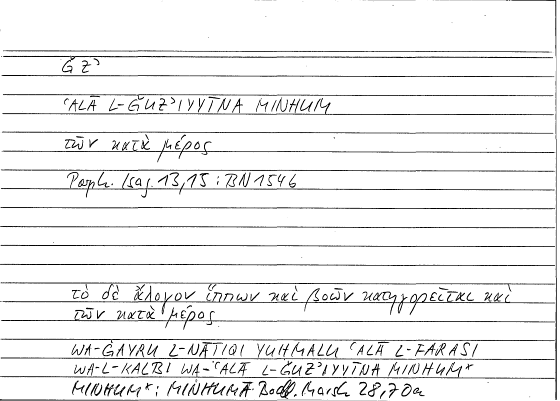 ǦZʾ
ʿALĀ L-ǦUZʾIYYĪNA MINHUM
τῶν κατὰ μέρος
Porph. Isag. 13,15 : BN 1546
τὸ δὲ ἄλογον ἵππων καὶ βοῶν κατηγορεῖται καὶ
τῶν κατὰ μέρος
WA-ĠAYRU L-NĀṬIQI YUḤMALU ʿALĀ L-FARASI
WA-L-KALBI WA-ʿALĀ L-ǦUZʾIYYĪNA MINHUM*
MINHUM* : MINHUMĀ Bodl. Marsh 28,70a